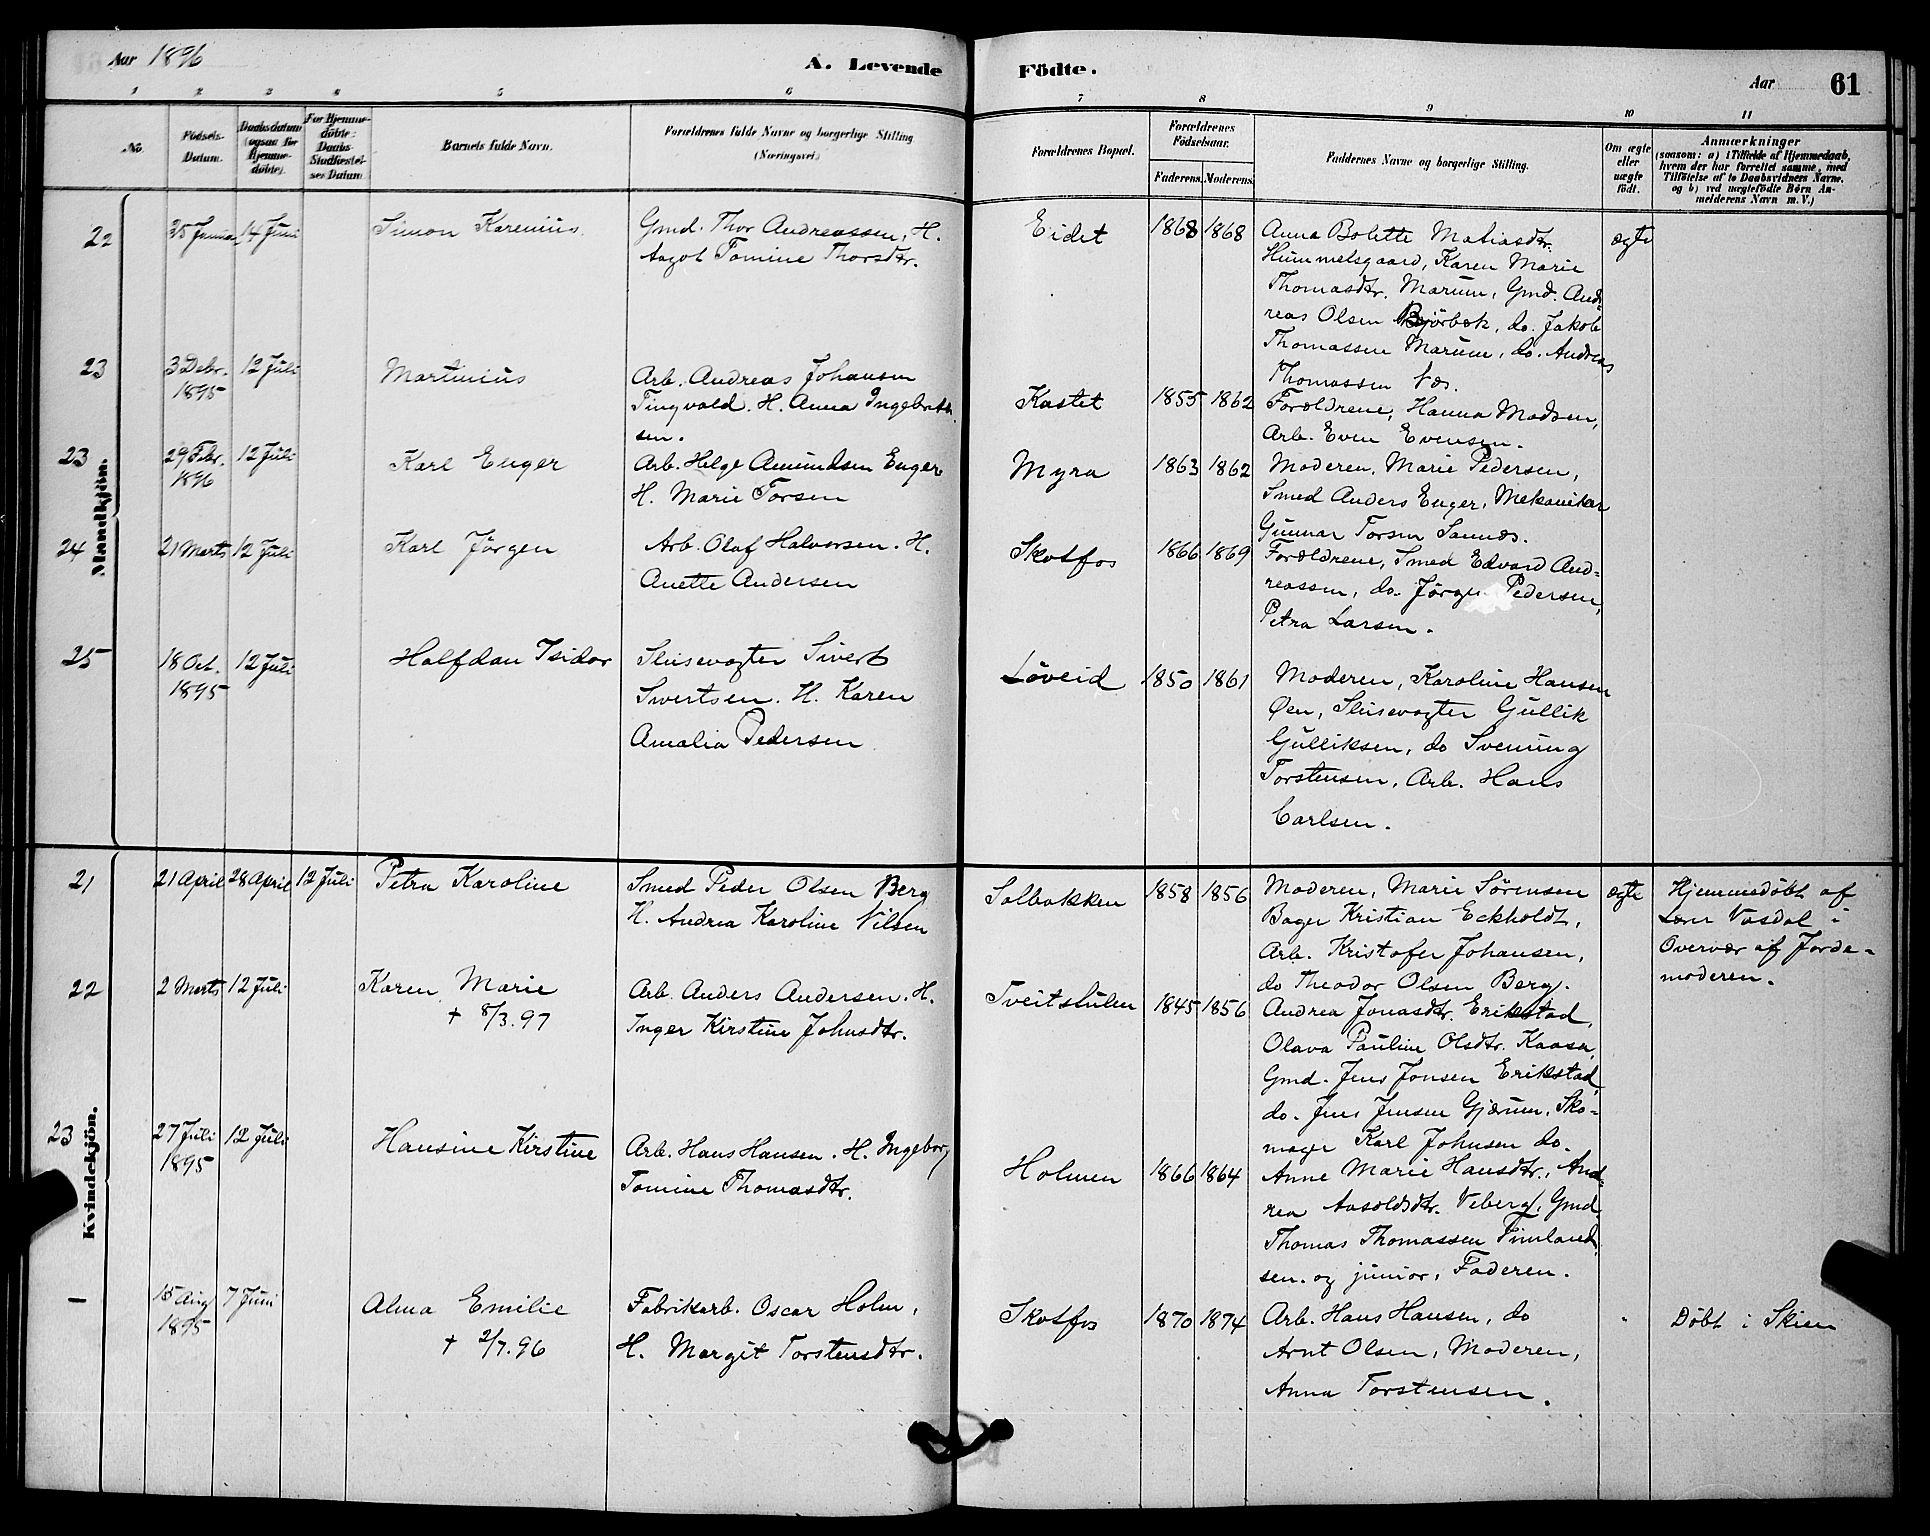 Aar 1896
A. Levende Födte.
Aar 61
1 2 3 4 5 6 7 8 9 10 11
No.
Födsels-
Datum.
Daabsdatum
(ogsaa for
Hjemme-
döbte).
For Hjemme-
döbte:
Daabs-
Stadfæstel-
ses Datum
Barnets fulde Navn.
Forældrenes fulde Navne og borgerlige Stilling
(Næringsvei)
Forældrenes Bopæl.
Forældrenes
Födselsaar.
Faderens. Moderens.
Faddernes Navne og borgerlige Stilling.
Om ægte
eller
uægte
födt.
Anmærkninger
(saasom: a) i Tilfælde af Hjemmedaab,
hvem der har forrettet samme, med
Tilföielse af to Daabsvidners Navne.
og b) ved uægtefödte Börn An-
melderens Navn m. V.)
Mandkjön.
22
25 Januar
14 Juni
Simon Karenius.
Gmd. Thor Andreassen, H.
Aagot Tomine Thorsdtr.
Eidet
1868 1868
Anna Bolette Matiasdtr.
Hummelsgaard, Karen Marie
Thomasdtr. Marum, Gmd. And-
reas Olsen Bjørbæk, do. Jakob
Thomassen Marum, do. Andreas
Thomassen Næs.
ægte
23
3 Debr.
1895
12 Juli
Martinius
Arb. Andreas Johansen
Tingvald. H. Anna Ingebret-
sen.
Kastet
1855 1862
Forældrene, Hanna Madsen,
Arb. Even Evensen.
23
29 Febr.
1896
12 Juli
Karl Enger
Arb. Helge Amundsen Enger
H. Marie Torsen
Myra
1863 1862
Moderen, Marie Pedersen,
Smed Anders Enger, Mekaniker
Gunnar Torsen Sannes.
24
21 Marts
12 Juli
Karl Jörgen
Arb. Olaf Halvorsen. H.
Anette Andersen
Skotfos
1866 1869
Forældrene, Smed Edvard And-
reassen, do. Jørgen Pedersen,
Petra Larsen.
25
18 Oct.
1895
12 Juli
Halfdan Isidor
Slusevogter Sivert
Sivertsen. H. Karen
Amalia Pedersen
Løveid
1850 1861
Moderen, Karoline Hansen
Øen, Slusevogter Gullik
Gulliksen, do Svenung
Torstensen, Arb. Hans
Carlsen.
Kvindekjön.
21
21 April
28 April
12 Juli
Petra Karoline
Smed Peder Olsen Berg
H. Andrea Karoline Nilsen
Solbakken
1858 1856
Moderen, Marie Sørensen
Bager Kristian Eckholdt,
Arb. Kristofer Johansen,
do Theodor Olsen Berg.
ægte
Hjemmedøbt af
Vasdal i
Overvær af Jorde-
moderen.
22
2 Marts
12 Juli
Karen Marie
+ 8/3.97
Arb. Anders Andersen. H.
Inger Kirstine Johnsdtr.
Tveitstulen
1845 1856
Andrea Jonasdtr. Erikstad,
Olava Pauline Olsdtr. Kaasa,
Gmd. Jens Jonsen Erikstad,
do. Jens Jensen Gjærum, Sko-
mager Karl Johnsen do.
23
27 Juli
1895
12 Juli
Hansine Kirstine
Arb. Hans Hansen. H. Ingeborg
Tomine Thomasdtr.
Holmen
1866 1864
Anne Marie Hansdtr., And-
rea Aasoldsdtr. Viberg, Gmd.
Thomas Thomassen
sen. og junior, Faderen.
—
15 Aug
1895
7 Juni
Alma Emilie
+ 2/7.96
Fabrikarb. Oscar Holm,
H. Margit Torstensdtr.
Skotfos
1870 1874
Arb. Hans Hansen, do
Arnt Olsen, Moderen,
Anna Torstensen.
"
Døbt i Skien